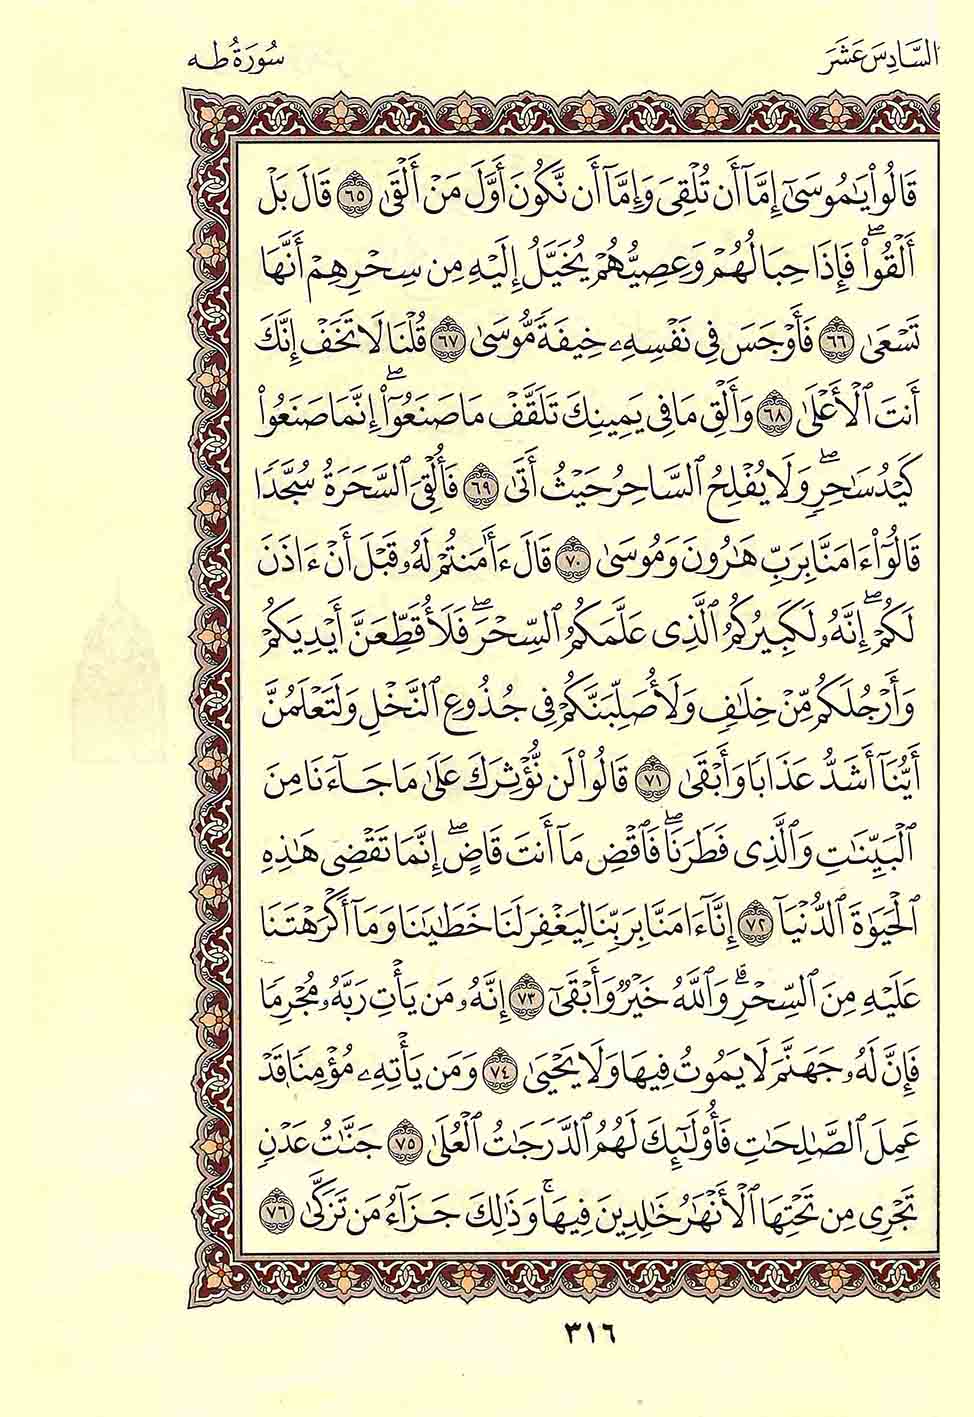 السَّادِسَ عَشَرَ
سُورَةُ طه
قَالُواْ يَٰمُوسَىٰٓ إِمَّآ أَن تُلْقِىَ وَإِمَّآ أَن نَّكُونَ أَوَّلَ مَنْ أَلْقَىٰ ٦٥ قَالَ بَلْ
أَلْقُواْۖ فَإِذَا حِبَالُهُمْ وَعِصِيُّهُمْ يُخَيَّلُ إِلَيْهِ مِن سِحْرِهِمْ أَنَّهَا
تَسْعَىٰ ٦٦ فَأَوْجَسَ فِى نَفْسِهِۦ خِيفَةً مُّوسَىٰ ٦٧ قُلْنَا لَا تَخَفْ إِنَّكَ
أَنتَ ٱلْأَعْلَىٰ ٦٨ وَأَلْقِ مَا فِى يَمِينِكَ تَلْقَفْ مَا صَنَعُوٓاْۖ إِنَّمَا صَنَعُواْ
كَيْدُ سَٰحِرٍۖ وَلَا يُفْلِحُ ٱلسَّاحِرُ حَيْثُ أَتَىٰ ٦٩ فَأُلْقِىَ ٱلسَّحَرَةُ سُجَّدًا
قَالُوٓاْ ءَامَنَّا بِرَبِّ هَٰرُونَ وَمُوسَىٰ ٧٠ قَالَ ءَامَنتُمْ لَهُۥ قَبْلَ أَنْ ءَاذَنَ
لَكُمْۖ إِنَّهُۥ لَكَبِيرُكُمُ ٱلَّذِى عَلَّمَكُمُ ٱلسِّحْرَۖ فَلَأُقَطِّعَنَّ أَيْدِيَكُمْ
وَأَرْجُلَكُم مِّنْ خِلَٰفٍ وَلَأُصَلِّبَنَّكُمْ فِى جُذُوعِ ٱلنَّخْلِ وَلَتَعْلَمُنَّ
أَيُّنَآ أَشَدُّ عَذَابًا وَأَبْقَىٰ ٧١ قَالُواْ لَن نُّؤْثِرَكَ عَلَىٰ مَا جَآءَنَا مِنَ
ٱلْبَيِّنَٰتِ وَٱلَّذِى فَطَرَنَاۖ فَٱقْضِ مَآ أَنتَ قَاضٍۖ إِنَّمَا تَقْضِى هَٰذِهِ
ٱلْحَيَوٰةَ ٱلدُّنْيَآ ٧٢ إِنَّآ ءَامَنَّا بِرَبِّنَا لِيَغْفِرَ لَنَا خَطَٰيَٰنَا وَمَآ أَكْرَهْتَنَا
عَلَيْهِ مِنَ ٱلسِّحْرِۗ وَٱللَّهُ خَيْرٌ وَأَبْقَىٰٓ ٧٣ إِنَّهُۥ مَن يَأْتِ رَبَّهُۥ مُجْرِمًا
فَإِنَّ لَهُۥ جَهَنَّمَ لَا يَمُوتُ فِيهَا وَلَا يَحْيَىٰ ٧٤ وَمَن يَأْتِهِۦ مُؤْمِنًا قَدْ
عَمِلَ ٱلصَّٰلِحَٰتِ فَأُوْلَٰٓئِكَ لَهُمُ ٱلدَّرَجَٰتُ ٱلْعُلَىٰ ٧٥ جَنَّٰتُ عَدْنٍ
تَجْرِى مِن تَحْتِهَا ٱلْأَنْهَٰرُ خَٰلِدِينَ فِيهَاۚ وَذَٰلِكَ جَزَآءُ مَن تَزَكَّىٰ ٧٦
٣١٦